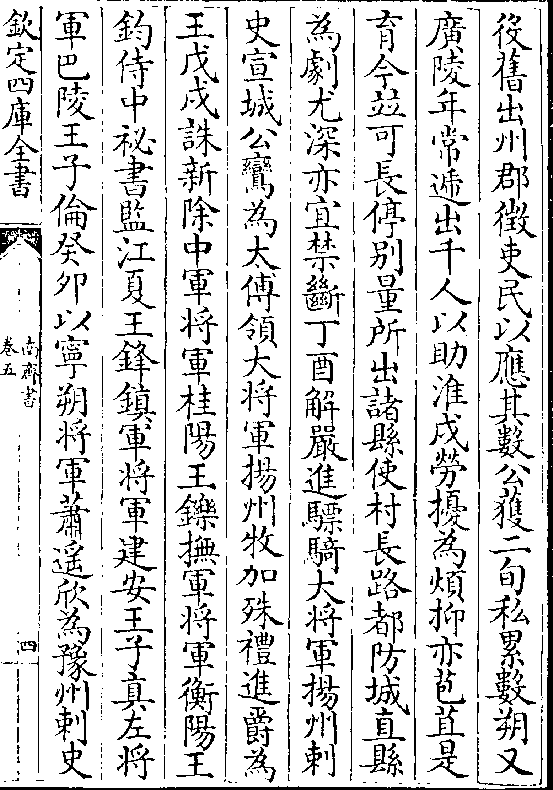 役舊出州郡徵吏民以應其數公獲二旬私累數朔又
廣陵年常遞出千人以助淮戍勞擾為煩抑亦苞苴是
育今竝可長停别量所出諸縣使村長路都防城直縣
為劇尤深亦宜禁斷丁酉解嚴進驃騎大將軍揚州刺
史宣城公鸞為大傅領大将軍揚州牧加殊禮進爵為
王戊戌誅新除中軍将軍桂陽王鑠撫軍将軍衡陽王
鈞侍中祕書監江夏王鋒鎮軍将軍建安王子真左将
軍巴陵王子倫癸夘以寧朔将軍蕭遥欣為豫州刺史
欽定四庫全書
南齊書
卷五
四